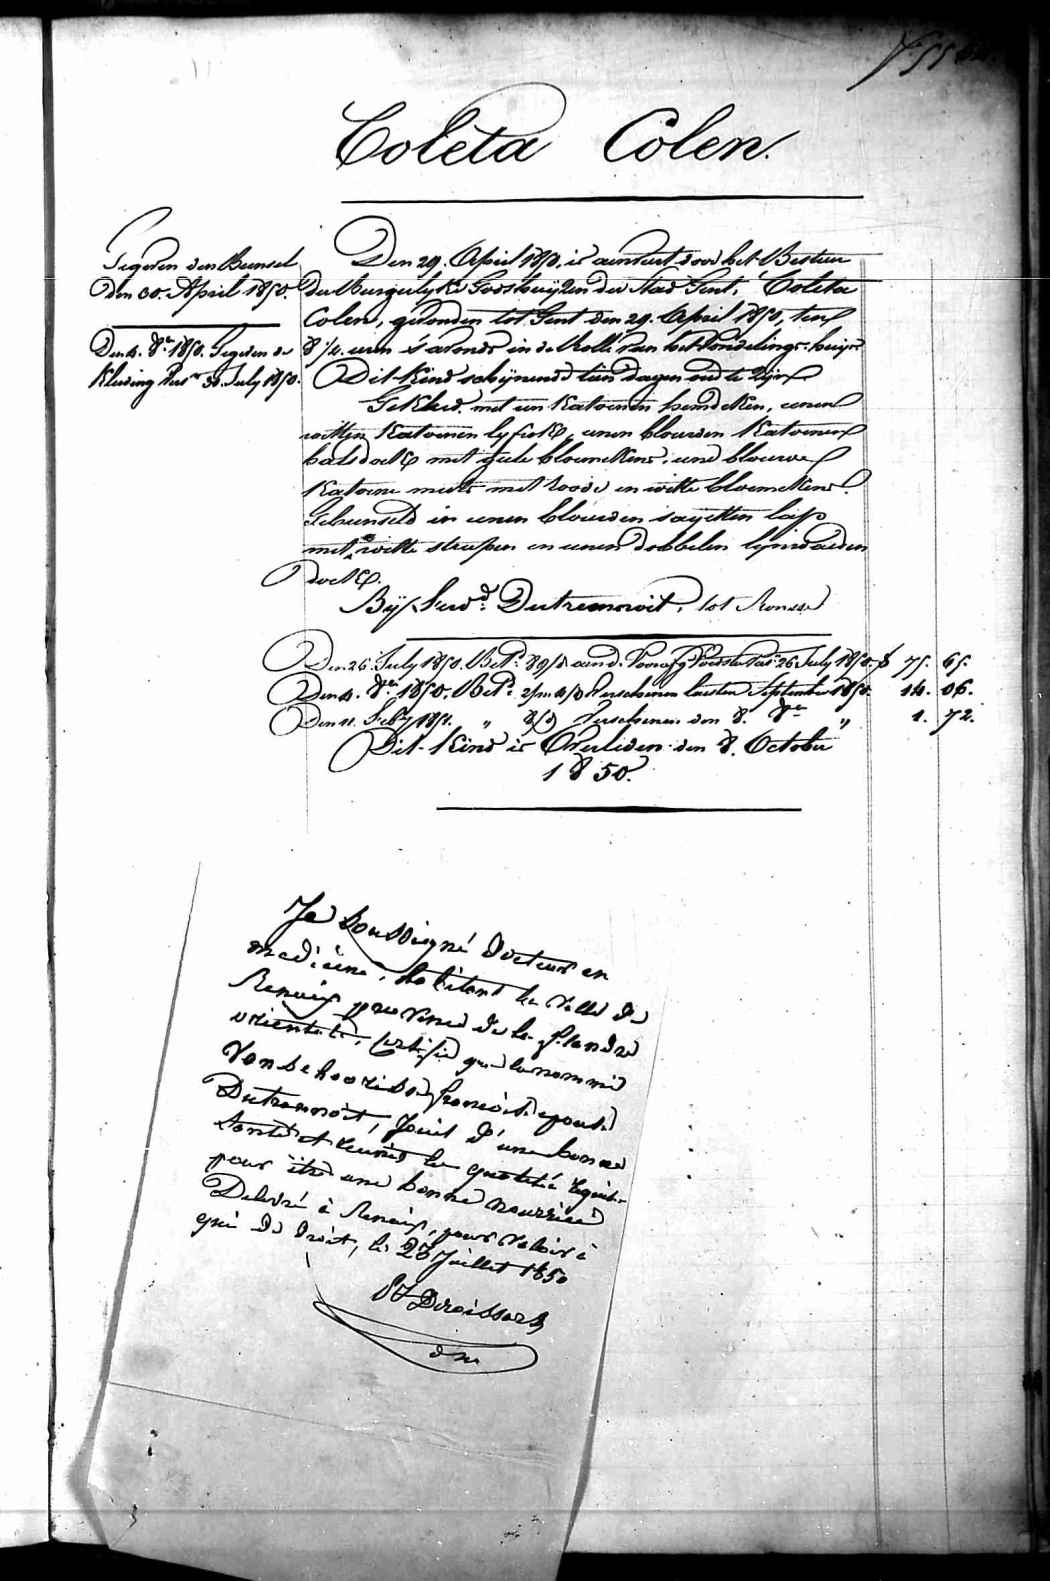 Coleta Colen.
Gegeven den Bunsel
den 30. April 1850.
Den 4. 8.re 1850. Gegeven de
Kleeding Pers.n 31 July 1850.
Den 29. April 1850, is aenveert door het Bestuer
der Burgerlyke Godshuyzen der Stad Gent, Coleta
Colen, gevonden tot Gent den 29. April 1850, ten
8 1/4. uren s'avonds in de Rolle van het Vondelings-huys
Dit Kind schynende tien dagen oud te Zyn
Gekleed met een Katoenen hemdeken, eenen
witten Katoenen lyfrok, eenen blauwen Katoenen
halsdoek met geele bloemekens, eene blauwe
Katoene muts met roode en witte bloemekens.
Gebunseld in eenen blauwen sayetten lap
met witte streepen en eenen dobbelen lynwaeden
doek.
By Ferd.d Dutrannoit, tot Ronse
Den 26. July 1850. Bet.d 89/d aend. Voorafg Voorste Pas. 26 July 1850. f 75. 65.
Den 4. 8.re 1850. Bet.d Verschenen laesten September 1850. 14. 06.
Den 11. Feb.y 1851. " 8/d Verschenen den 8. 8.re " 1. 72.
Dit Kind is Overleden den 8. October
1850.
Je soussigné docteur en
medicine, habitant la ville de
Renaix province de la flandre
orientale, certifie que la nommé
françoise epouse
Dutrannoit, jouit d'une bonne
santé et reunit la qualité requise
pour être une bonne nourrice
Delivré à Renaix, pour valoir à
qui de droit, le 25 Juillet 1850